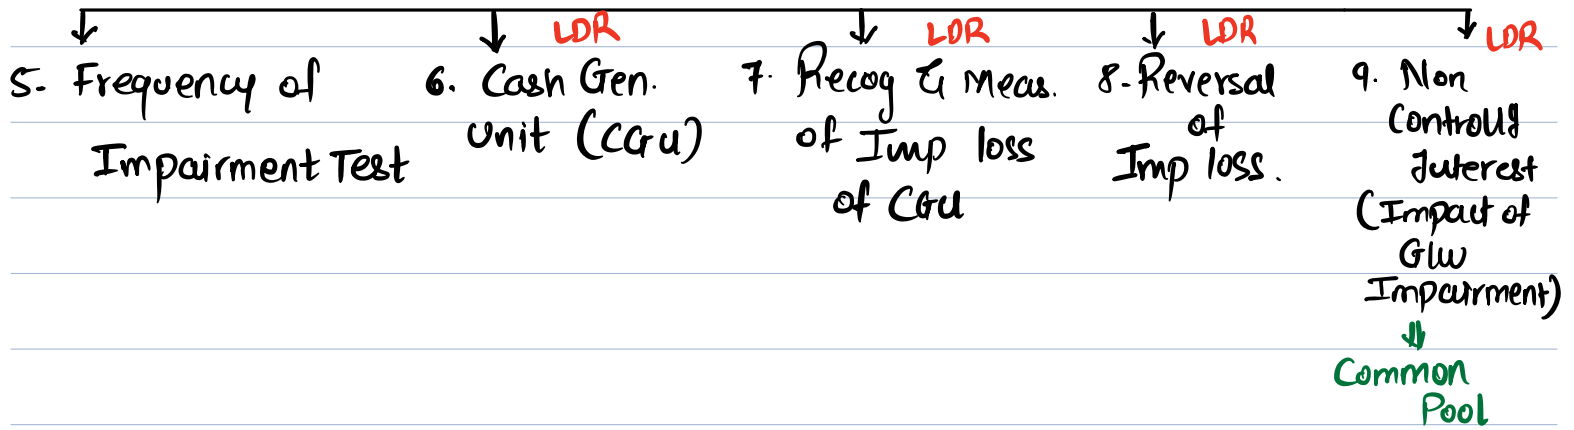 LDR
LDR
LDR
LDR
5. Frequency of
Impairment Test
6. Cash Gen.
Unit (CGU)
7. Recog & Meas.
of Imp loss
of CGU
8. Reversal
of
Imp loss.
9. Non
Controllg
Interest
(Impact of
G/w
Impairment)
Common
Pool